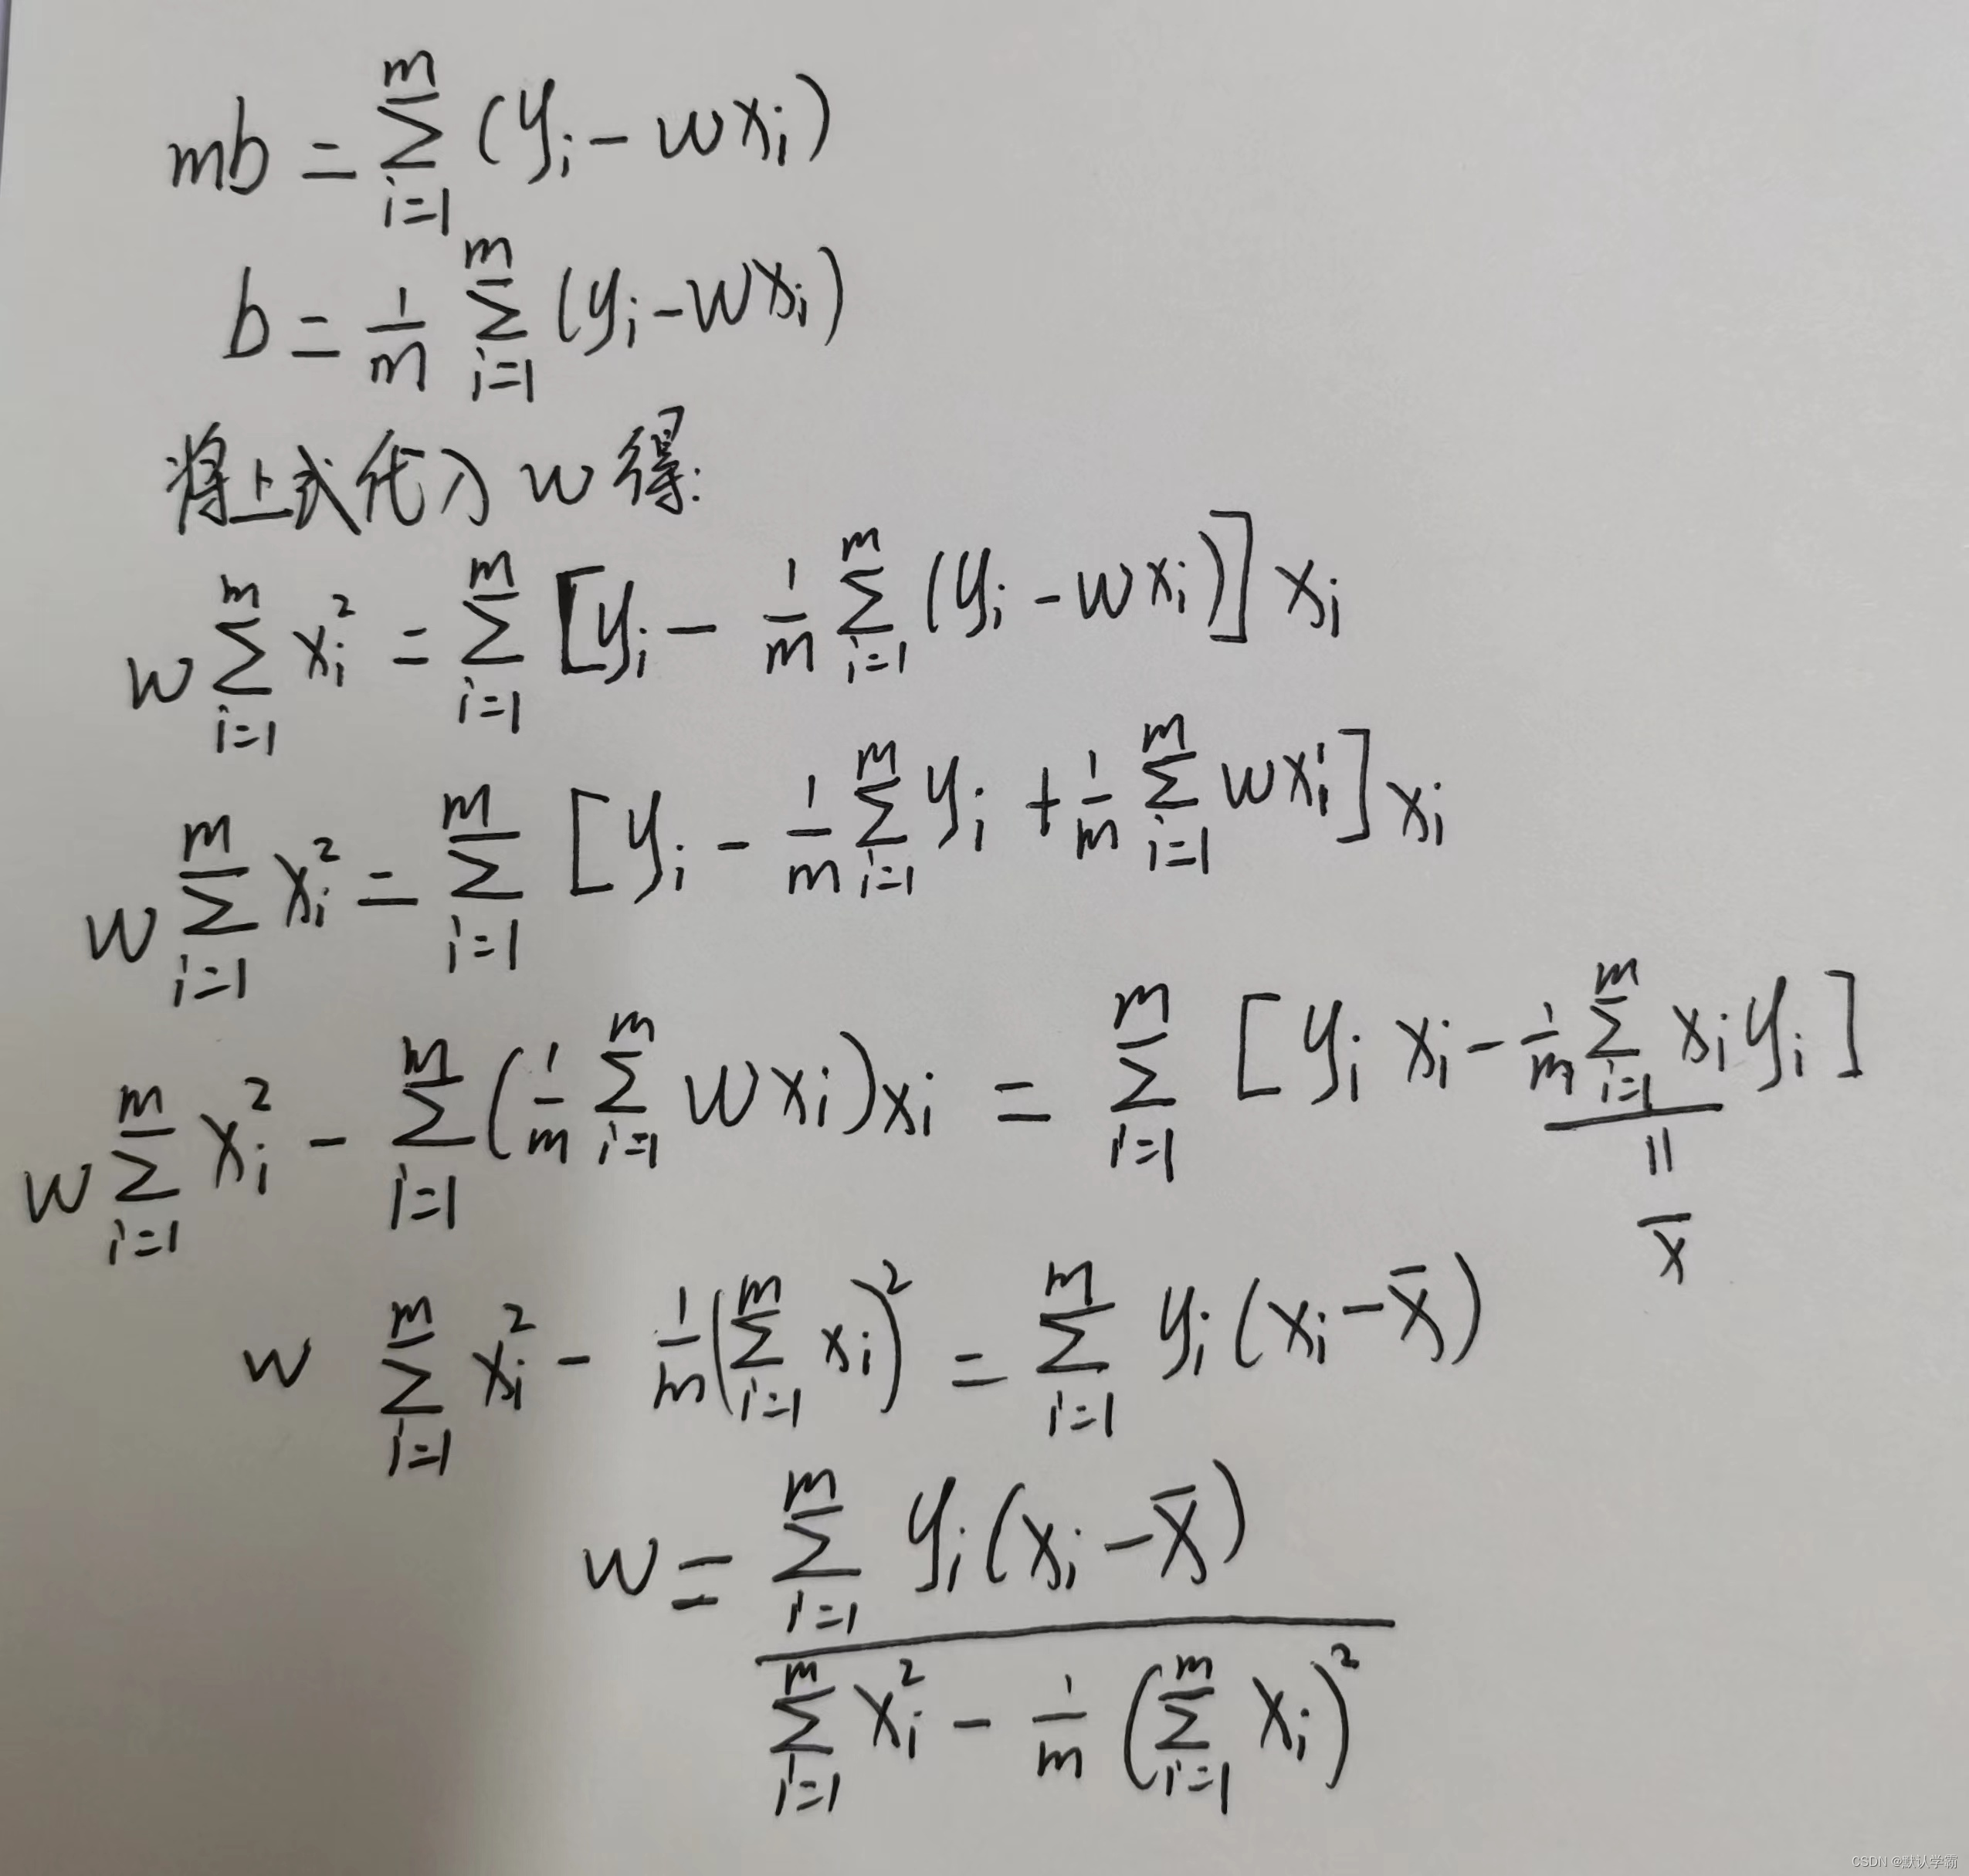 mb = \sum_{i=1}^{m} (y_i - wx_i)
b = \frac{1}{m} \sum_{i=1}^{m} (y_i - wx_i)
将上式代入 w 得:
w \sum_{i=1}^{m} x_i^2 = \sum_{i=1}^{m} [y_i - \frac{1}{m} \sum_{i=1}^{m} (y_i - wx_i)] x_i
w \sum_{i=1}^{m} x_i^2 = \sum_{i=1}^{m} [y_i - \frac{1}{m} \sum_{i=1}^{m} y_i + \frac{1}{m} \sum_{i=1}^{m} wx_i] x_i
w \sum_{i=1}^{m} x_i^2 - \sum_{i=1}^{m} (\frac{1}{m} \sum_{i=1}^{m} wx_i) x_i = \sum_{i=1}^{m} [y_i x_i - \frac{1}{m} \sum_{i=1}^{m} x_i y_i]
||
\bar{x}
w \sum_{i=1}^{m} x_i^2 - \frac{1}{m} (\sum_{i=1}^{m} x_i)^2 = \sum_{i=1}^{m} y_i (x_i - \bar{x})
w = \frac{\sum_{i=1}^{m} y_i (x_i - \bar{x})}{\sum_{i=1}^{m} x_i^2 - \frac{1}{m} (\sum_{i=1}^{m} x_i)^2}
CSDN @默认学霸